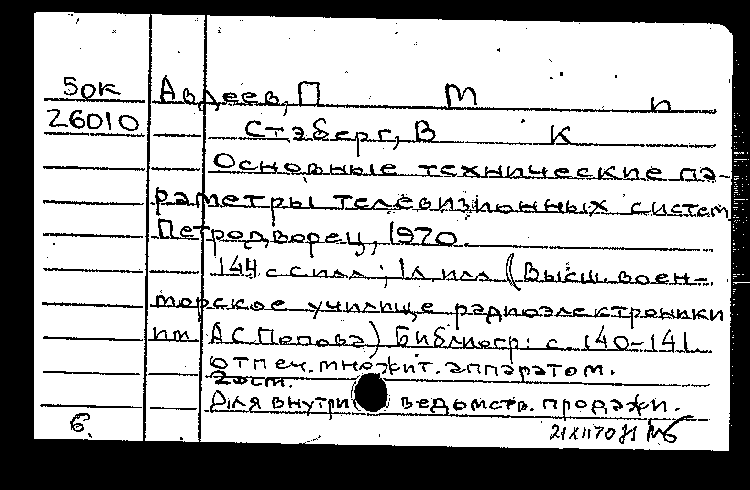 50к Авдеев, П М и
26010 Стаберг, В К
Основные технические па-
раметры телевизионных систем
Петродворец, 1970.
144 с с илл; 1 л. илл (Высш. воен-
морское училище радиоэлектроники
им А С Попова) Библиогр: с. 140-141
отпеч. множит. аппаратом.
2 отт.
Для внутри ведомств. продажи.
б.